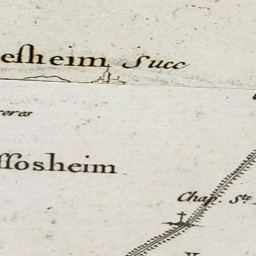 eſheim Succ
eres
ſſosheim
Chap. Ste